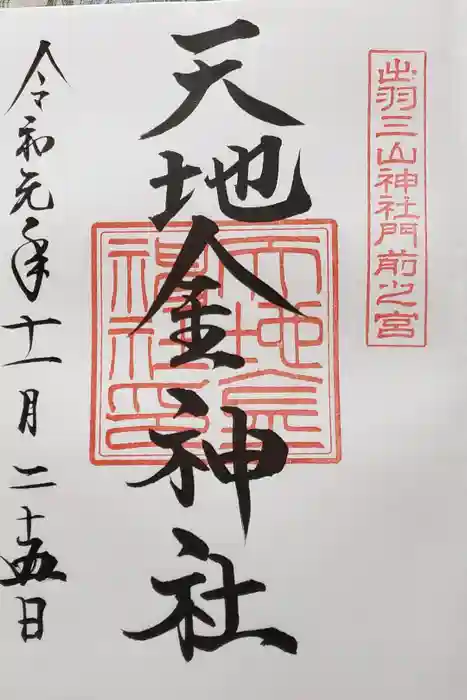 出羽三山神社門前之宮
天地金神社
天地金
神社印
令和元年十一月二十五日